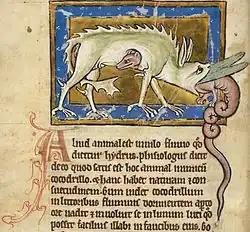 Aliud animal est in nilo flumine qd
dicitur hydrus. phisiologus dicit
de eo quod satis est hoc animal inimicum
cocodrillo. et hanc habet naturam et con
suetudinem. cum videt cocodrillum
in litore fluminis dormientem aperto
ore vadit et involvit se in limum luti qo
possit facilius illabi in faucibus eius.